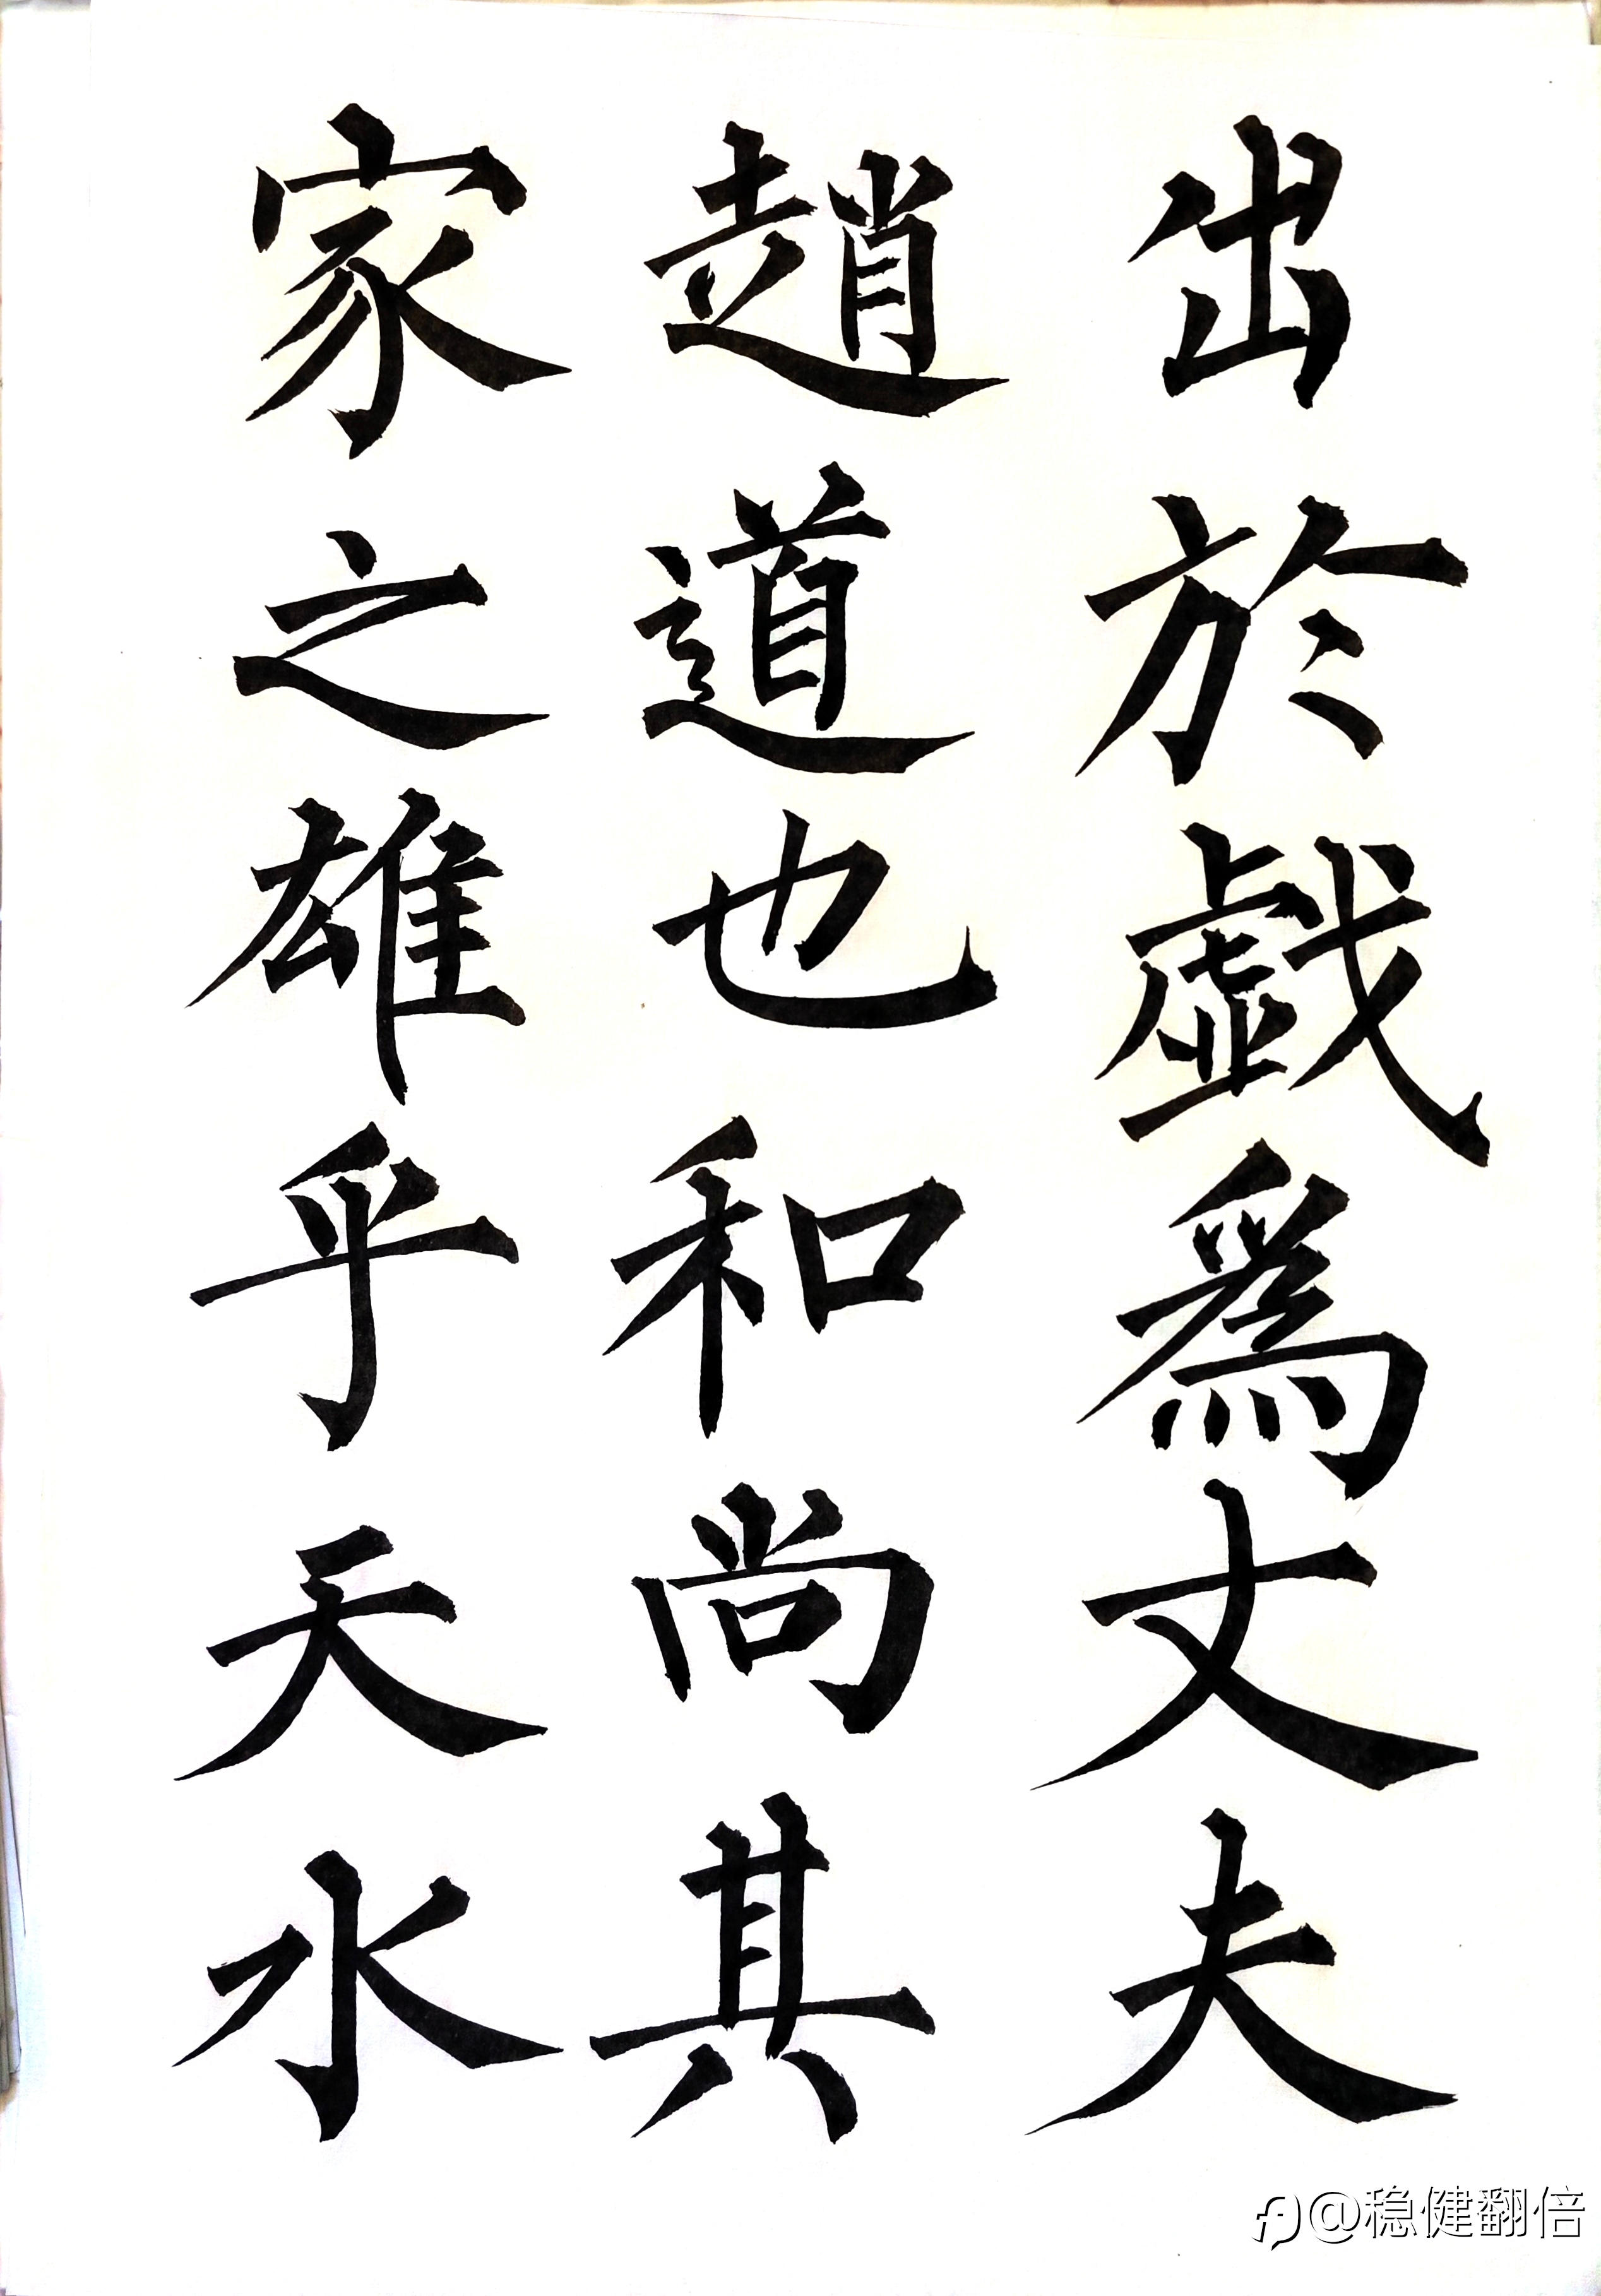 出於戱爲丈夫
趙道也和尚其
家之雄乎天水
@稳健翻倍